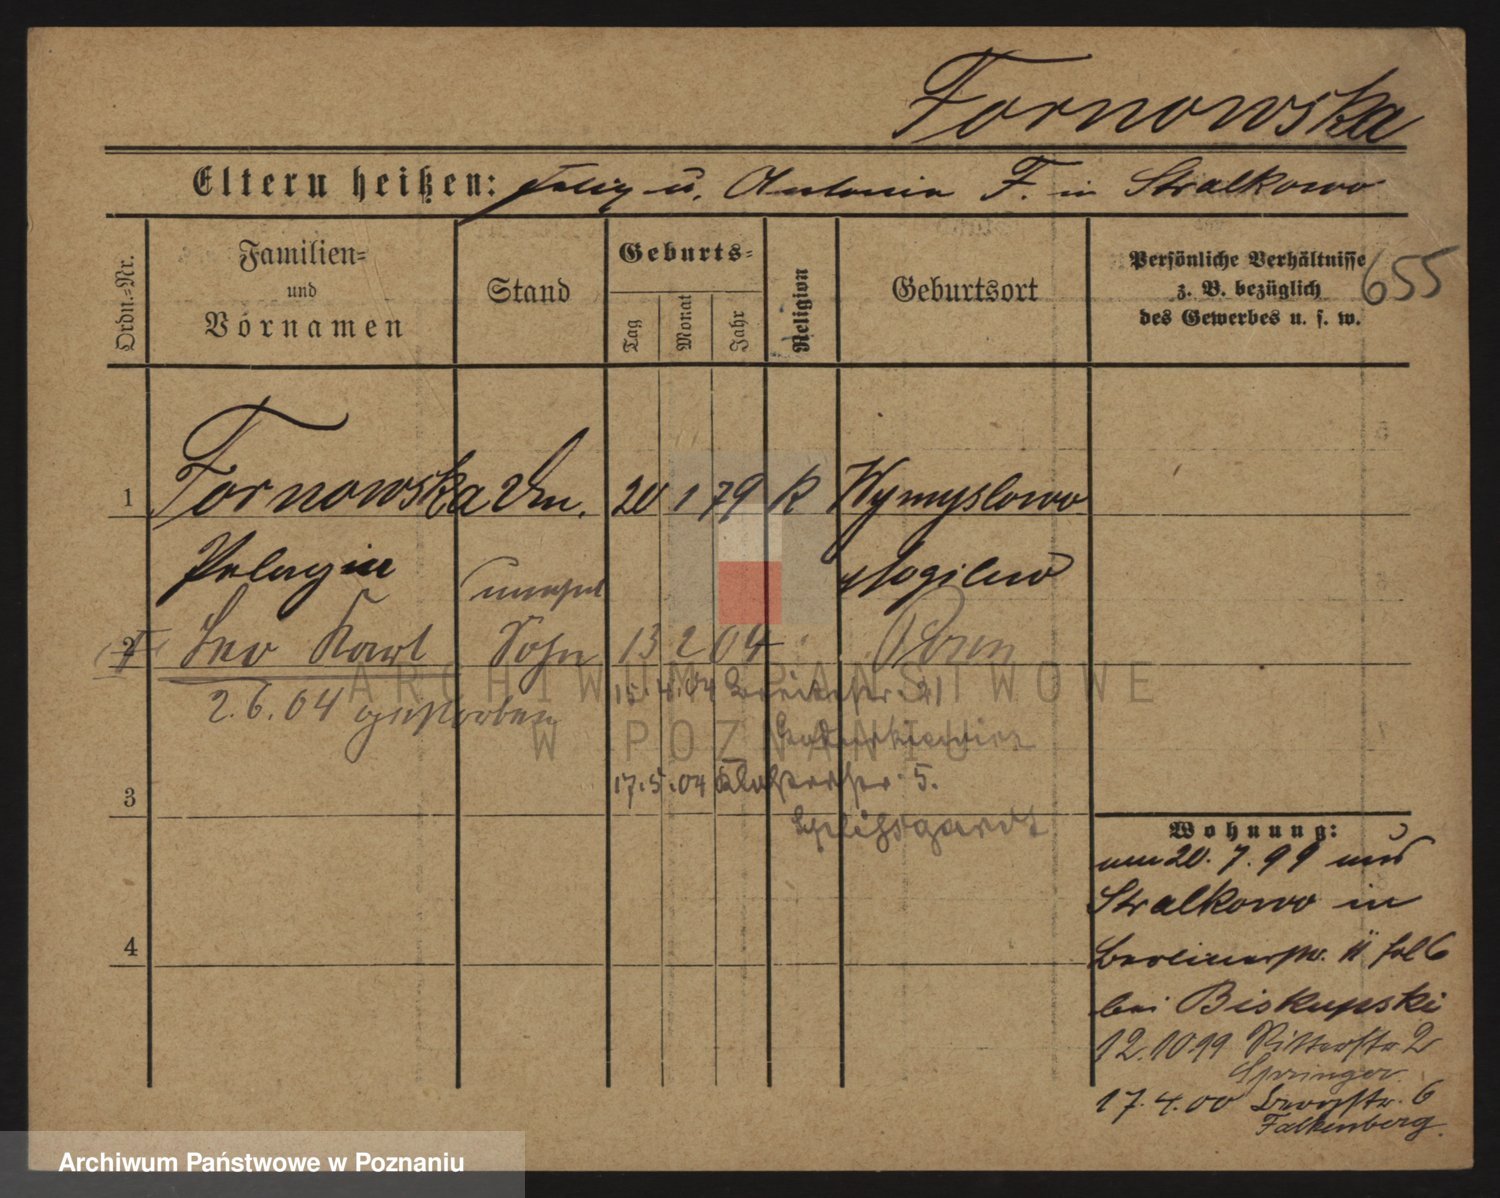 Fornowska
Eltern heißen: Felix u. Antonie F. in Stralkowo
Ordn.-Nr.
Familien-
und
Vornamen
Stand
Geburts-
Tag
Monat
Jahr
Religion
Geburtsort
Persönliche Verhältnisse
z. B. bezüglich
des Gewerbes u. s. w.
655
1 Fornowska 20 1 79 K Wymyslowo
Pelagia Mogilno
unehel
2 Leo Karl Sohn 13 2 04 Posen
2.6.04 gestorben
15.4.04 Breitestr. 21
17.5.04 Klosterstr. 5.
3
4
Wohnung:
am 20.7.99 aus
Stralkowo in
Berlinerstr. 11
bei Biskupski
12.10.99 Ritterstr 2
Springer
17.4.00 6
Falkenberg.
ARCHIWUM PAŃSTWOWE
W POZNANIU
Archiwum Państwowe w Poznaniu